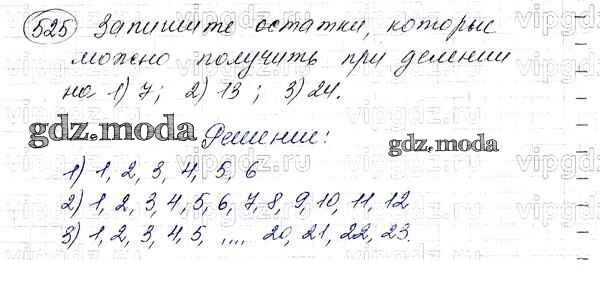 525 Запишите остатки, которые
можно получить при делении
на 1) 7; 2) 13; 3) 24.
gdz.moda Решение: gdz.moda
1) 1, 2, 3, 4, 5, 6
2) 1, 2, 3, 4, 5, 6, 7, 8, 9, 10, 11, 12
3) 1, 2, 3, 4, 5, .... 20, 21, 22, 23.